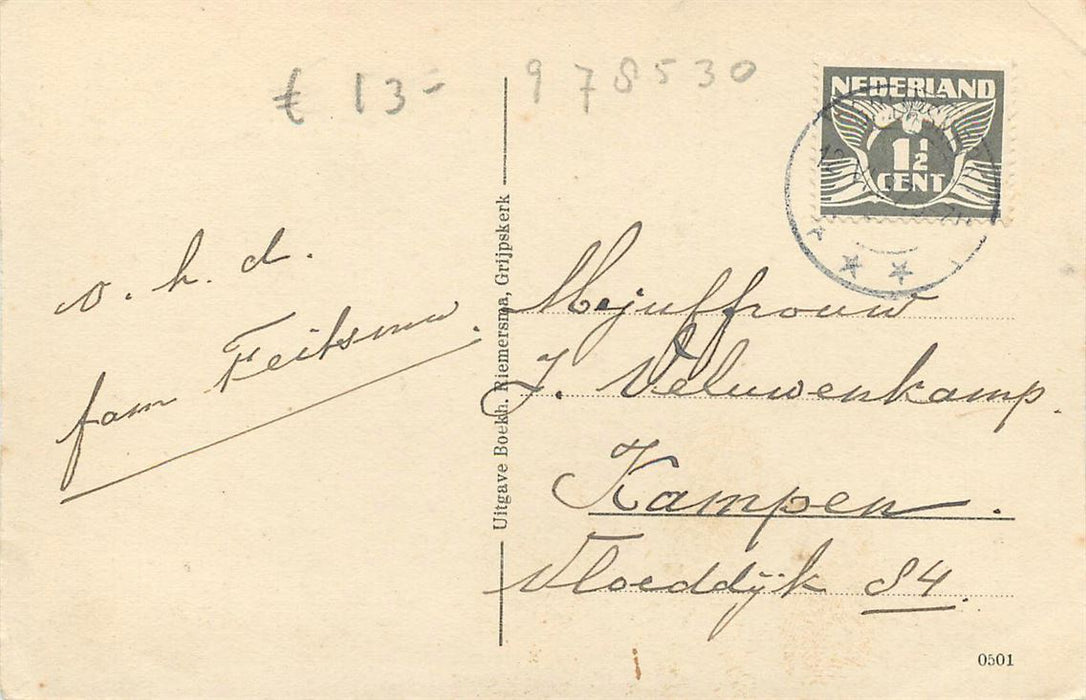 € 13-
978530
NEDERLAND
1½
CENT
v. h. d.
fam Feitsma.
Uitgave Boekh. Riemersma, Grijpskerk
Mejuffrouw
J. Veluwenkamp.
Kampen.
Vloeddijk 84.
0501